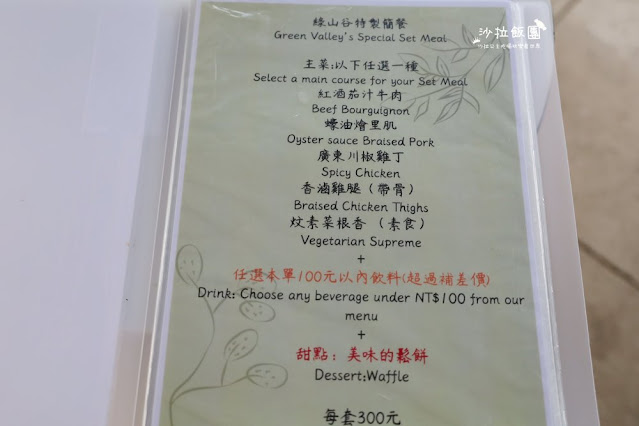 沙拉飯團
綠山谷特製簡餐
Green Valley's Special Set Meal
主菜:以下任選一種
Select a main course for your Set Meal
紅酒茄汁牛肉
Beef Bourguignon
蠔油燴里肌
Oyster sauce Braised Pork
廣東川椒雞丁
Spicy Chicken
香滷雞腿（帶骨）
Braised Chicken Thighs
炆素菜根香 （素食）
Vegetarian Supreme
+
任選本單100元以內飲料(超過補差價)
Drink: Choose any beverage under NT$100 from our
menu
+
甜點：美味的鬆餅
Dessert:Waffle
每套300元